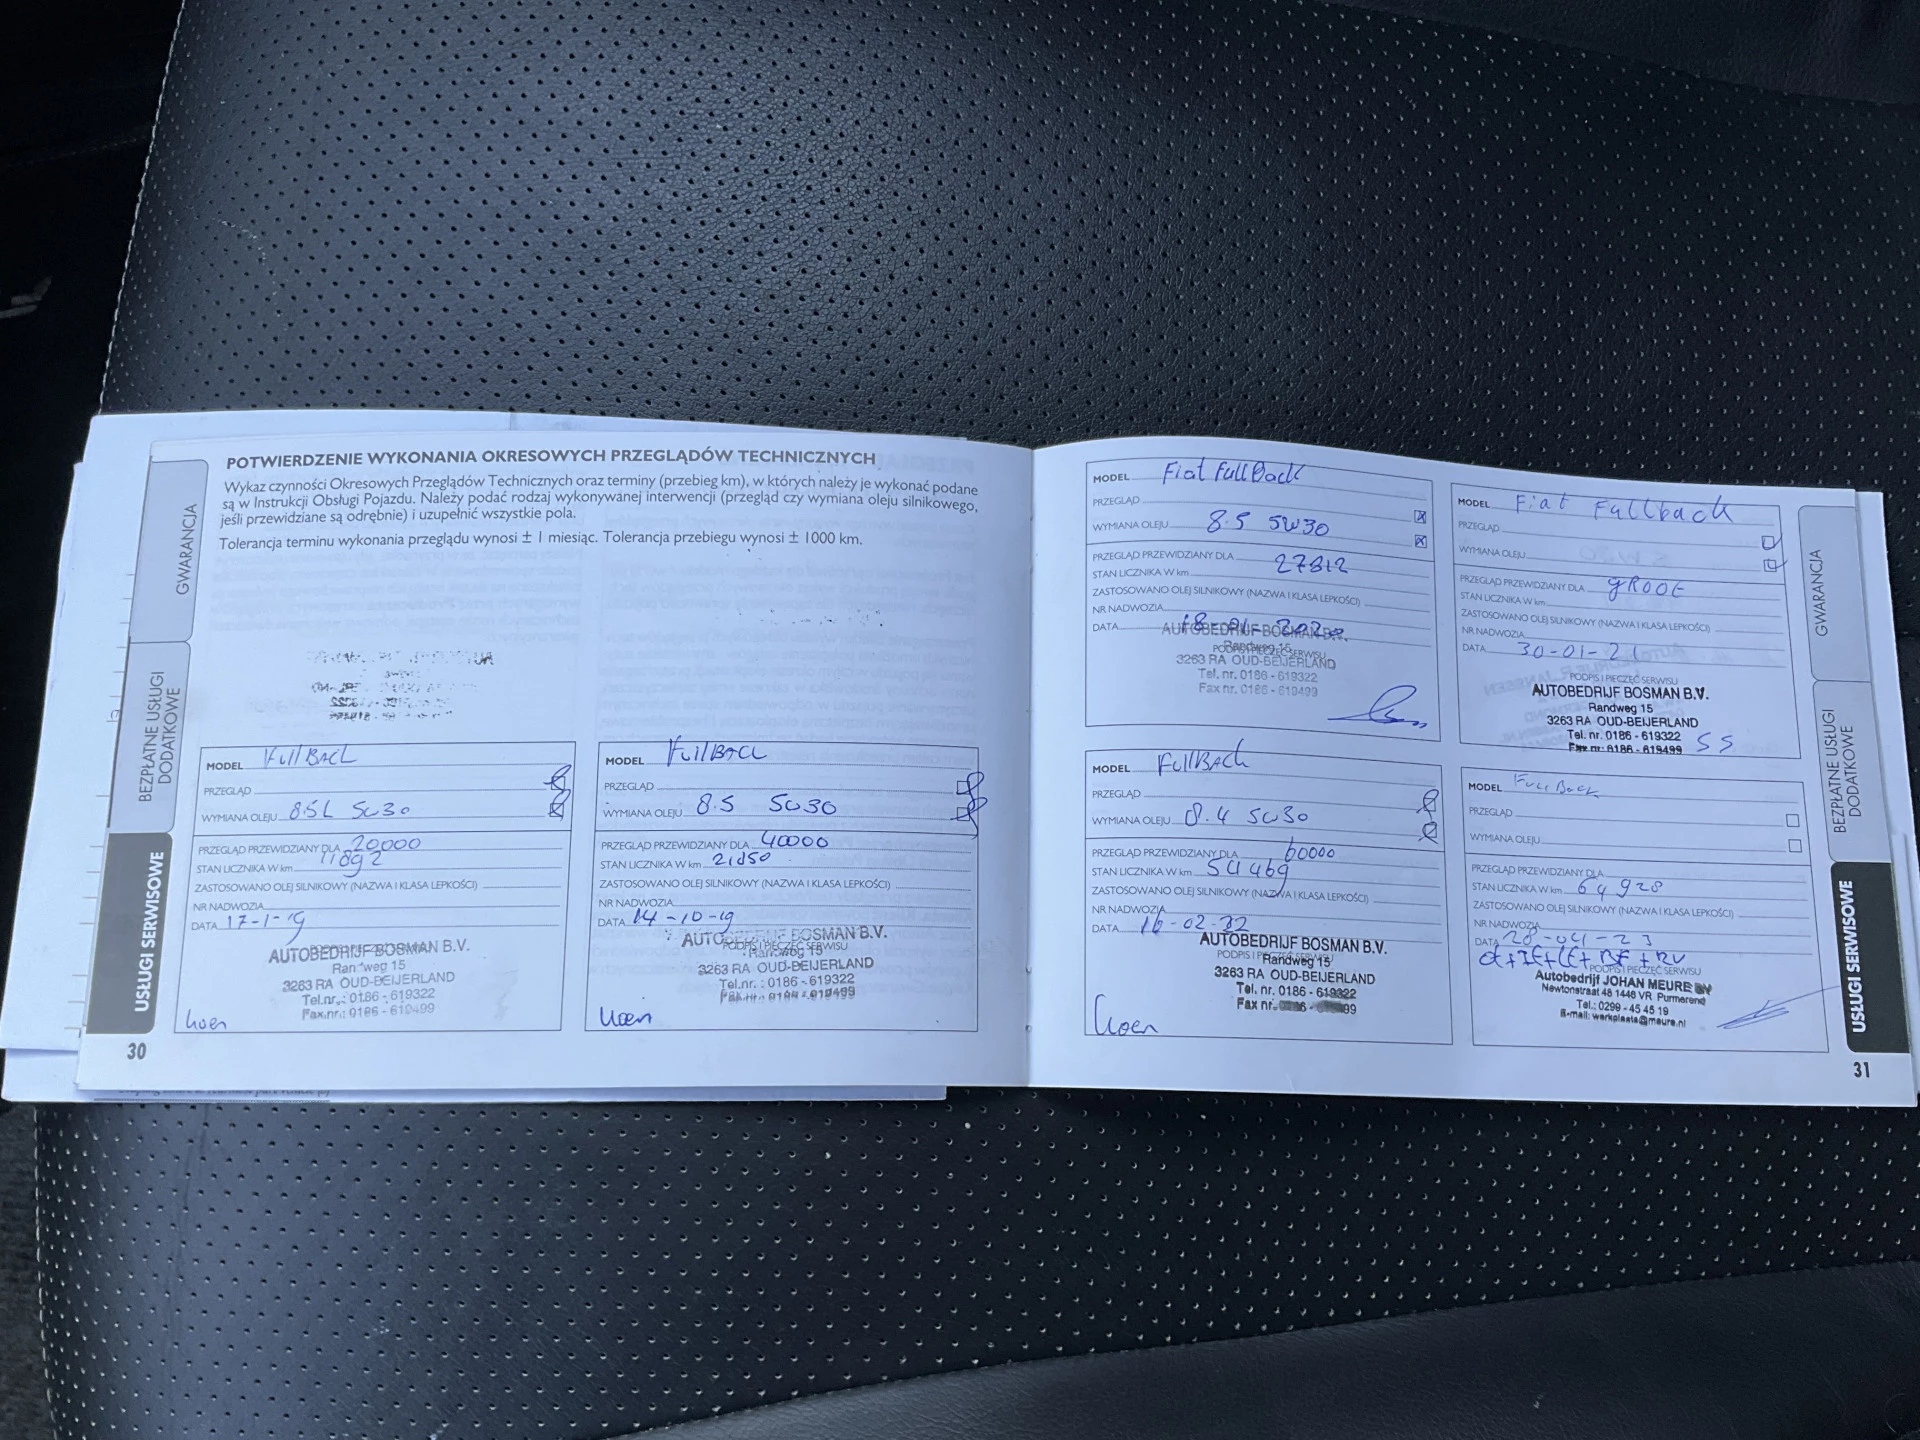 POTWIERDZENIE WYKONANIA OKRESOWYCH PRZEGLĄDÓW TECHNICZNYCH
Wykaz czynności Okresowych Przeglądów Technicznych oraz terminy (przebieg km), w których należy je wykonać podane
są w Instrukcji Obsługi Pojazdu. Należy podać rodzaj wykonywanej interwencji (przegląd czy wymiana oleju silnikowego,
jeśli przewidziane są odrębnie) i uzupełnić wszystkie pola.
Tolerancja terminu wykonania przeglądu wynosi ± 1 miesiąc. Tolerancja przebiegu wynosi ± 1000 km.
GWARANCJA
BEZPŁATNE USŁUGI
DODATKOWE
USŁUGI SERWISOWE
MODEL FullBACk
PRZEGLĄD
WYMIANA OLEJU 8.5L 5w30
PRZEGLĄD PRZEWIDZIANY DLA 20000
STAN LICZNIKA W km 11892
ZASTOSOWANO OLEJ SILNIKOWY (NAZWA I KLASA LEPKOŚCI)
NR NADWOZIA
DATA 17-1-19
PODPIS I PIECZĘĆ SERWISU
AUTOBEDRIJF BOSMAN B.V.
Randweg 15
3263 RA OUD-BEIJERLAND
Tel.nr.: 0186 - 619322
Fax.nr.: 0186 - 619499
Koen
30
MODEL FullBACk
PRZEGLĄD
WYMIANA OLEJU 8.5 5w30
PRZEGLĄD PRZEWIDZIANY DLA 40000
STAN LICZNIKA W km
ZASTOSOWANO OLEJ SILNIKOWY (NAZWA I KLASA LEPKOŚCI)
NR NADWOZIA
DATA 14-10-19
AUTOBEDRIJF BOSMAN B.V.
PODPIS I PIECZĘĆ SERWISU
Randweg 15
3263 RA OUD-BEIJERLAND
Tel.nr.: 0186 - 619322
Fax.nr.: 0186 - 619499
Koen
MODEL Fiat FullBack
PRZEGLĄD
WYMIANA OLEJU 8.5 5W30
PRZEGLĄD PRZEWIDZIANY DLA 27812
STAN LICZNIKA W km
ZASTOSOWANO OLEJ SILNIKOWY (NAZWA I KLASA LEPKOŚCI)
NR NADWOZIA
DATA 18-01-2020
AUTOBEDRIJF BOSMAN B.V.
PODPIS I PIECZĘĆ SERWISU
Randweg 15
3263 RA OUD-BEIJERLAND
Tel. nr. 0186 - 619322
Fax nr. 0186 - 619499
MODEL Fiat Fullback
PRZEGLĄD
WYMIANA OLEJU
PRZEGLĄD PRZEWIDZIANY DLA gROOt
STAN LICZNIKA W km
ZASTOSOWANO OLEJ SILNIKOWY (NAZWA I KLASA LEPKOŚCI)
NR NADWOZIA
DATA 30-01-21
PODPIS I PIECZĘĆ SERWISU
AUTOBEDRIJF BOSMAN B.V.
Randweg 15
3263 RA OUD-BEIJERLAND
Tel. nr. 0186 - 619322
Fax nr. 0186 - 619499 SS
MODEL FullBack
PRZEGLĄD
WYMIANA OLEJU 8.4 5w30
PRZEGLĄD PRZEWIDZIANY DLA 60000
STAN LICZNIKA W km 54469
ZASTOSOWANO OLEJ SILNIKOWY (NAZWA I KLASA LEPKOŚCI)
NR NADWOZIA
DATA 16-02-22
AUTOBEDRIJF BOSMAN B.V.
PODPIS I PIECZĘĆ SERWISU
Randweg 15
3263 RA OUD-BEIJERLAND
Tel. nr. 0186 - 619322
Fax nr.
Koen
MODEL FullBack
PRZEGLĄD
WYMIANA OLEJU
PRZEGLĄD PRZEWIDZIANY DLA
STAN LICZNIKA W km 64928
ZASTOSOWANO OLEJ SILNIKOWY (NAZWA I KLASA LEPKOŚCI)
NR NADWOZIA
DATA 28-04-23
PODPIS I PIECZĘĆ SERWISU
Autobedrijf JOHAN MEURE BV
Newtonstraat 48 1446 VR Purmerend
Tel.: 0299 - 45 45 19
E-mail: werkplaats@meure.nl
GWARANCJA
BEZPŁATNE USŁUGI
DODATKOWE
USŁUGI SERWISOWE
31